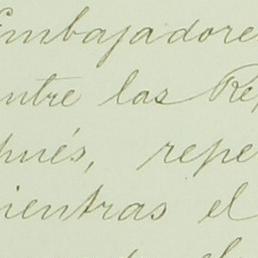 Embajadore
entre las Rep
pués, repe
ientras el